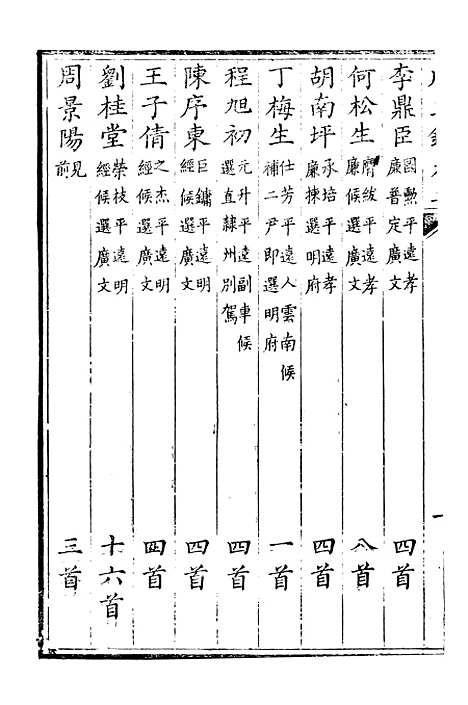 李鼎臣 國勲平遠孝廉普定廣文 四首
何松生 黻平遠孝廉候選廣文 八首
胡南坪 承培平遠孝廉揀選明府 四首
丁梅生 仕芳平遠人雲南候補二尹即選明府 一首
程旭初 元升平遠副車候選直隸州別駕 四首
陳序東 巨鏞平遠明經候選廣文 四首
王子倩 之杰平遠明經候選廣文 四首
劉桂堂 榮枝平遠明經候選廣文 十六首
周景陽 見前 三首